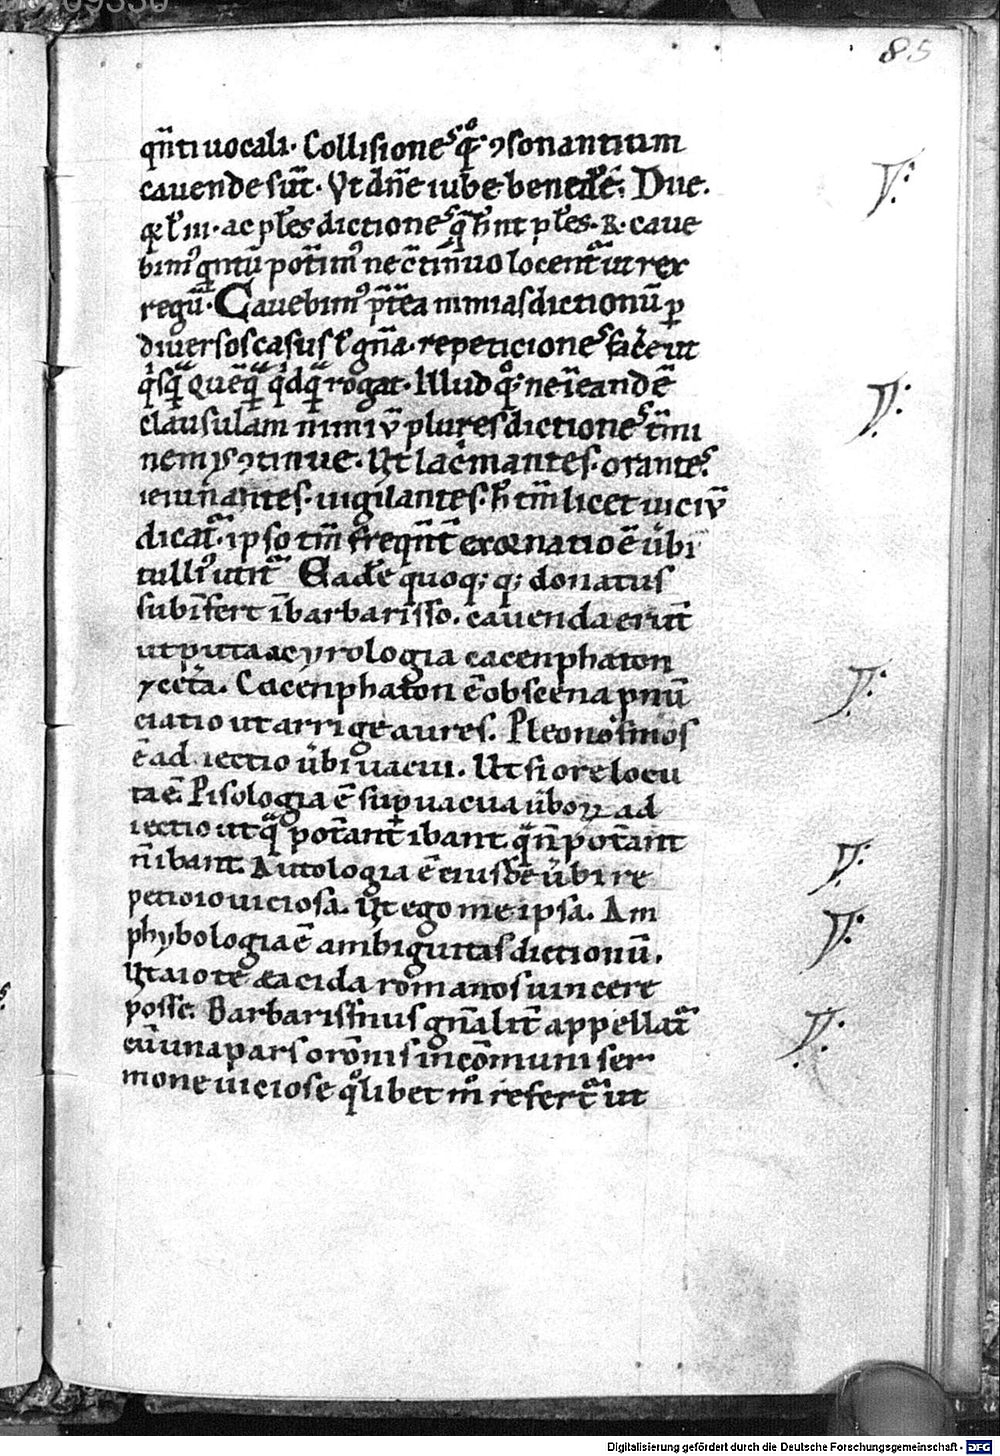 85
qn̄ti uocali· Collisione᷒ q̊ꝫ ꝯsonantium
cauende sūt· Vt dn̄e iube benedic̄e· Due·
ul̄ iii· ac pl̄es dictione᷒ q̄ pl̄es· R· caue
bim᷒ qntū pot̄im᷒ nec̄ tin̄uo locent᷑ ut rex
regū· Cauebim᷒ p̄t̄ea nimias dictionū ꝑ
diuersos casus ul̄ gn̄a· repeticione᷒ fac̄e ut
q̇sq̄ quēq̄ rogat· Illud qꝫ ne ī eandē
clausulam nimiū plures dictione᷒ t̄mi
nem᷒ ꝯtinue· Ut lac̄mantes· orante᷒
ieiunantes· uigilantes· h̄ tm̄ licet uiciū
dicat᷑· ipso tm̄ freqn̄t̄ exornatio ē ubi
tulli᷒ utit᷑ Eadē quoqꝫ qꝫ donatus
subīfert ī barbarisso· cauenda erūt
ut puta acyrologia cacenphaton
⁊ cet̄a· Cacenphaton ē obscena pnū
ciatio ut arrige aures· Pleonasmos
ē adiectio ūbi uacui· Ut si ore locu
ta ē· Pisologia ē supuacua ūboꝝ ad
iectio ut q̄ pot̄ant ibant qn̄ pot̄ant
n̄ ibant· Autologia ē eiusdē ūbi re
peticio uiciosa· Ut ego me ipsa· Am
phybologia ē ambiguitas dictionū·
Ut aio te eacida romanos uincere
posse· Barbarissmus gn̄alit̄ appellat᷑
cū una pars orōnis in cōmuni ser
mone uiciose q̊libet m̊ refert᷑ ut
Digitalisierung gefördert durch die Deutsche Forschungsgemeinschaft - DFG